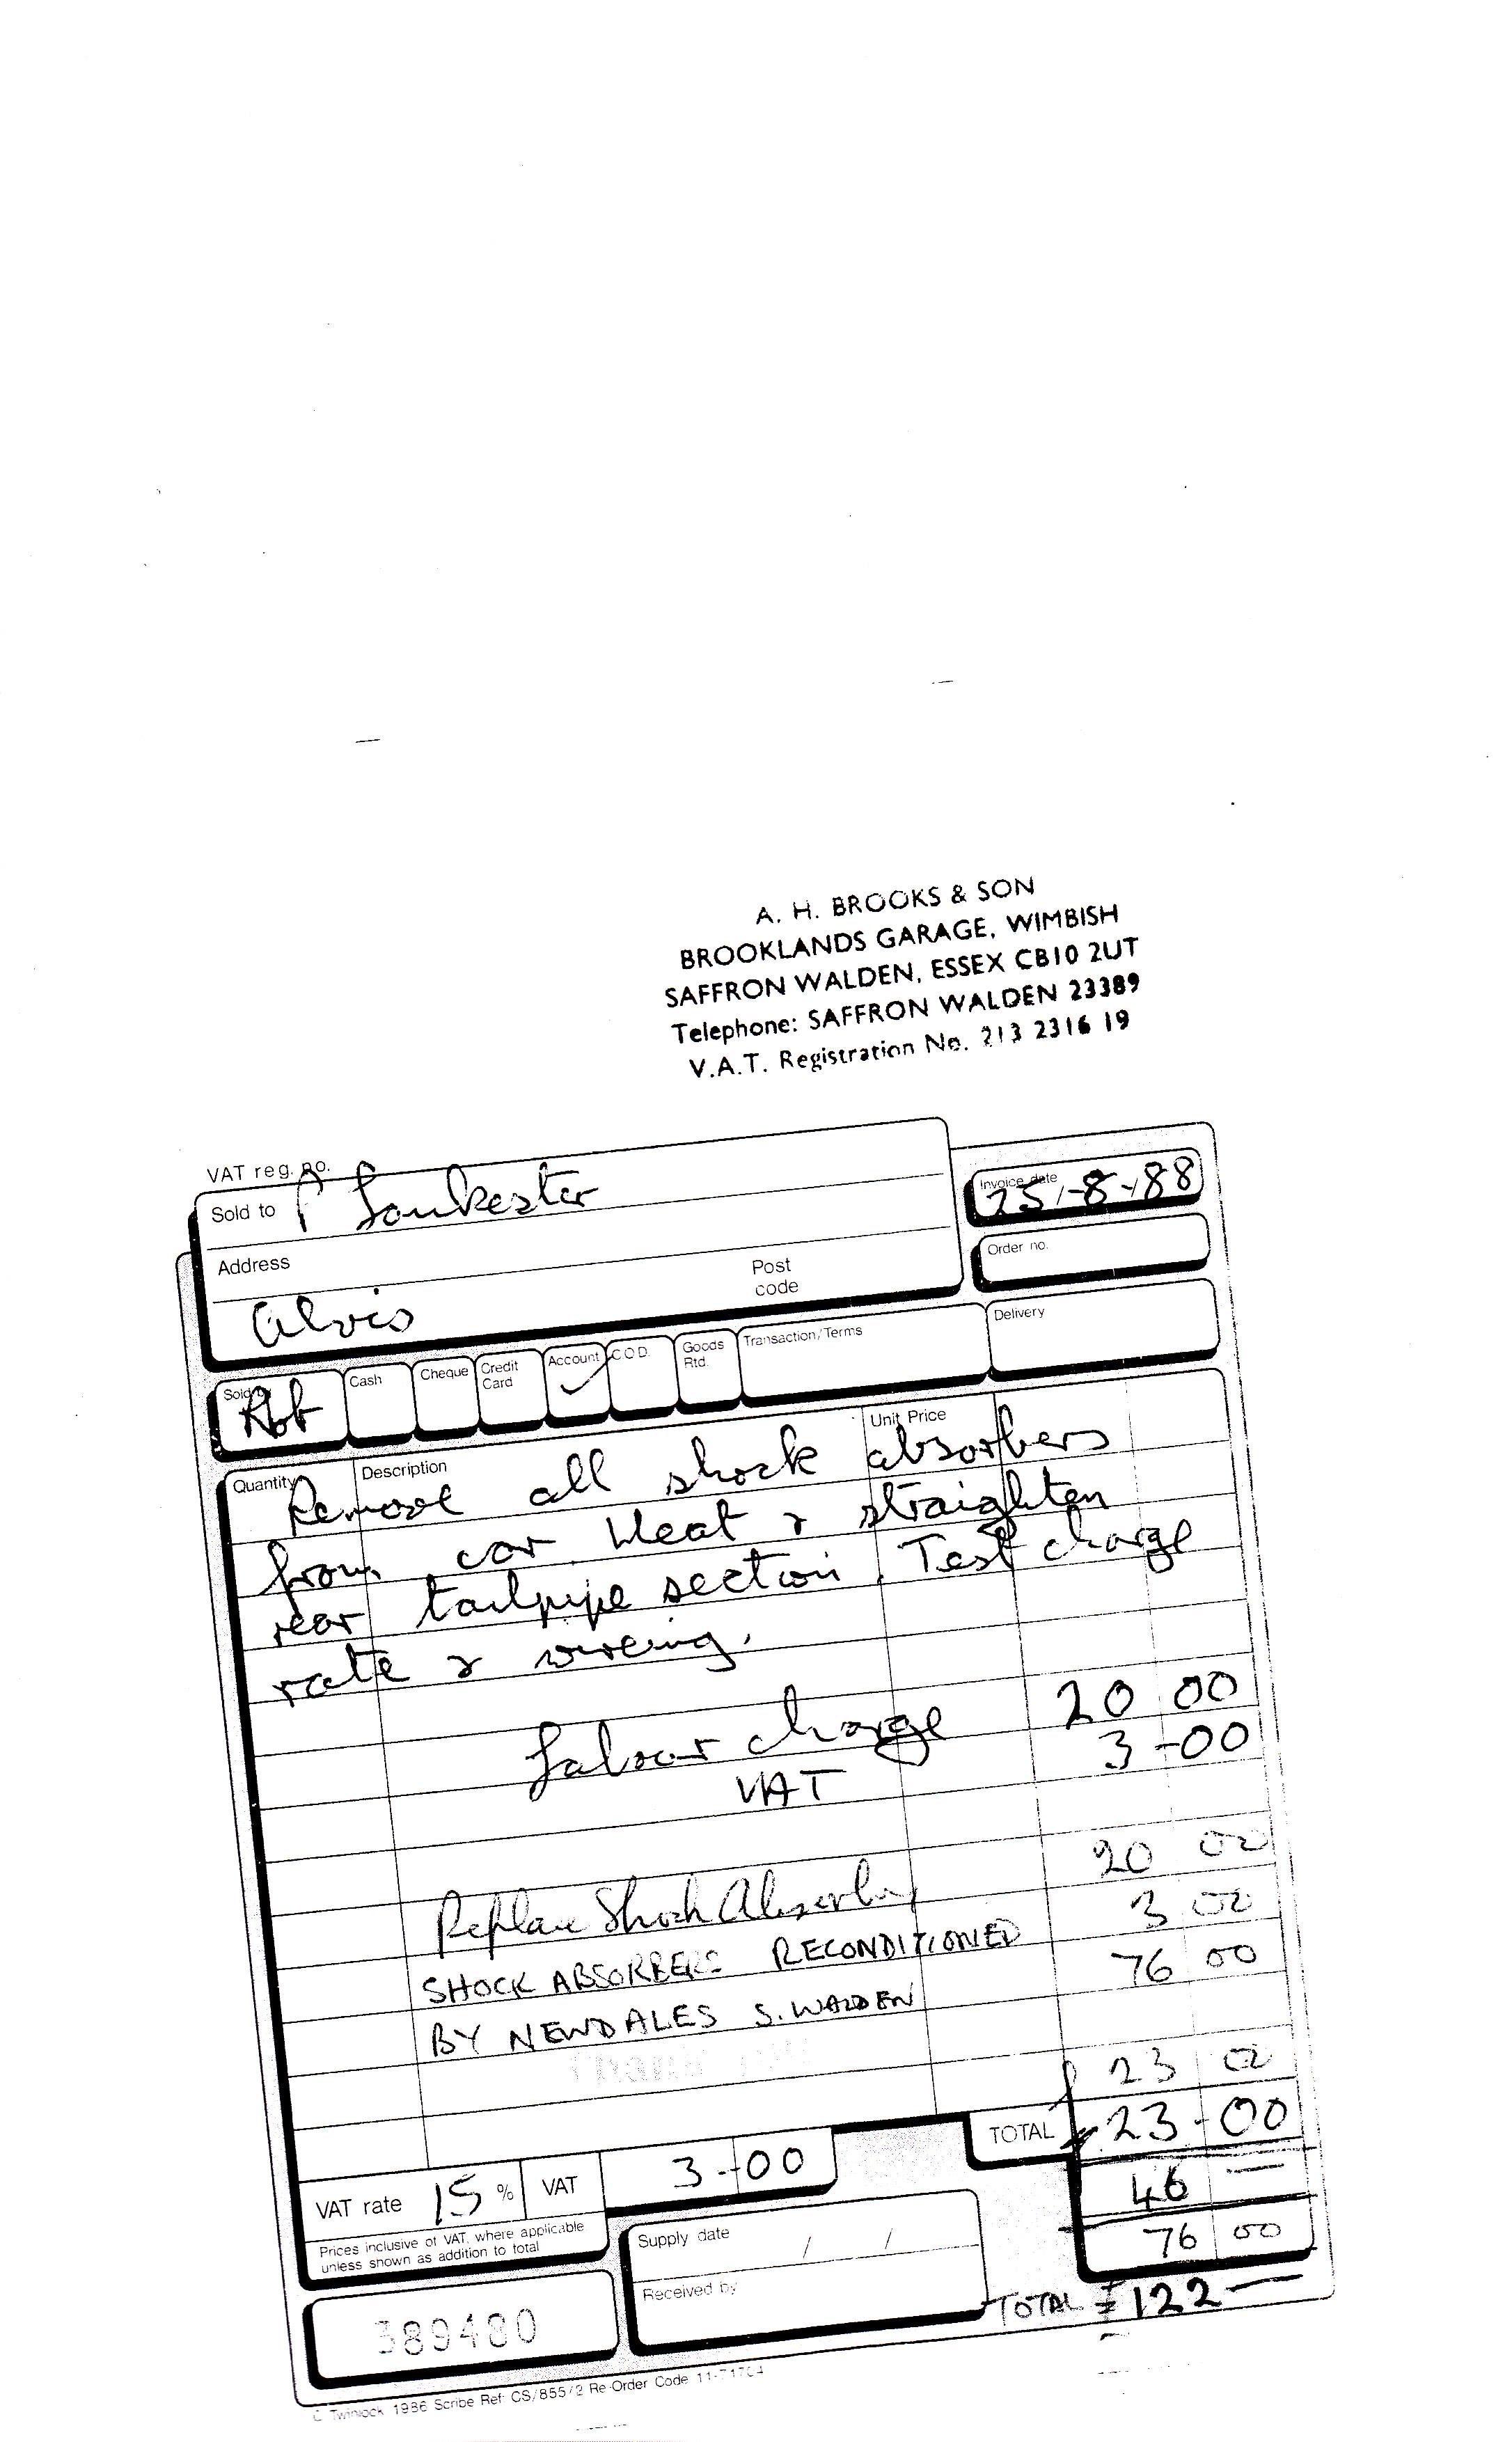 A. H. BROOKS & SON
BROOKLANDS GARAGE, WIMBISH
SAFFRON WALDEN, ESSEX CB10 2UT
Telephone: SAFFRON WALDEN 23389
V.A.T. Registration No. 213 2316 19
VAT reg. no.
Sold to P Lonkester
Invoice date 25-8-88
Address
Post code
Order no.
Alvis
Sold by Rob
Cash
Cheque
Credit Card
Account ✓
C.O.D.
Goods Rtd.
Transaction/Terms
Delivery
Quantity Description Unit Price
Remove all shock absorbers
from car. Heat & straighten
rear tailpipe section. Test charge
rate & wireing.
Labour charge 20 00
VAT 3-00
Replace Shock Absorbers 20 00
3 00
SHOCK ABSORBERS RECONDITIONED 76 00
BY NEWDALES S. WALDEN
£ 23 00
TOTAL £ 23-00
VAT rate 15 % VAT 3-00
46 —
76 00
Prices inclusive of VAT, where applicable
unless shown as addition to total
Supply date / /
Received by
TOTAL £122—
389480
© Twinlock 1986 Scribe Ref: CS/855/2 Re-Order Code 11-71704